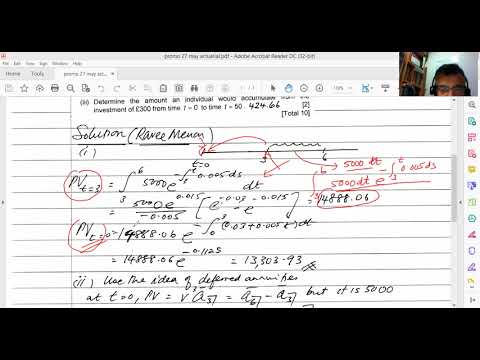 promo 27 may actuarial.pdf - Adobe Acrobat Reader DC (32-bit)
promo 27 may act...
(ii) Determine the amount an individual would accumulate from the
investment of £300 from time t = 0 to time t = 50. 424.66 [2]
[Total 10]
Solution (Ravee Menon)
(i)
t=0 3 6
5000 dt
PV t=3 = ∫₃⁶ 5000 e^{-∫₃ᵗ 0.005 ds} dt
∫₃⁶ 5000 dt e^{-∫₃ᵗ 0.005 ds}
= 5000 e^{0.015} / -0.005 [e^{-0.03} - e^{-0.015}] = 14888.06
PV t=0 = 14888.06 e^{-∫₀³ (0.03+0.005t) dt}
= 14888.06 e^{-0.1125} = 13,303.93
ii) Use the idea of deferred annuities
at t=0, PV = v³ a̅₃̅| = a̅₆̅| - a̅₃̅| but it is 5000